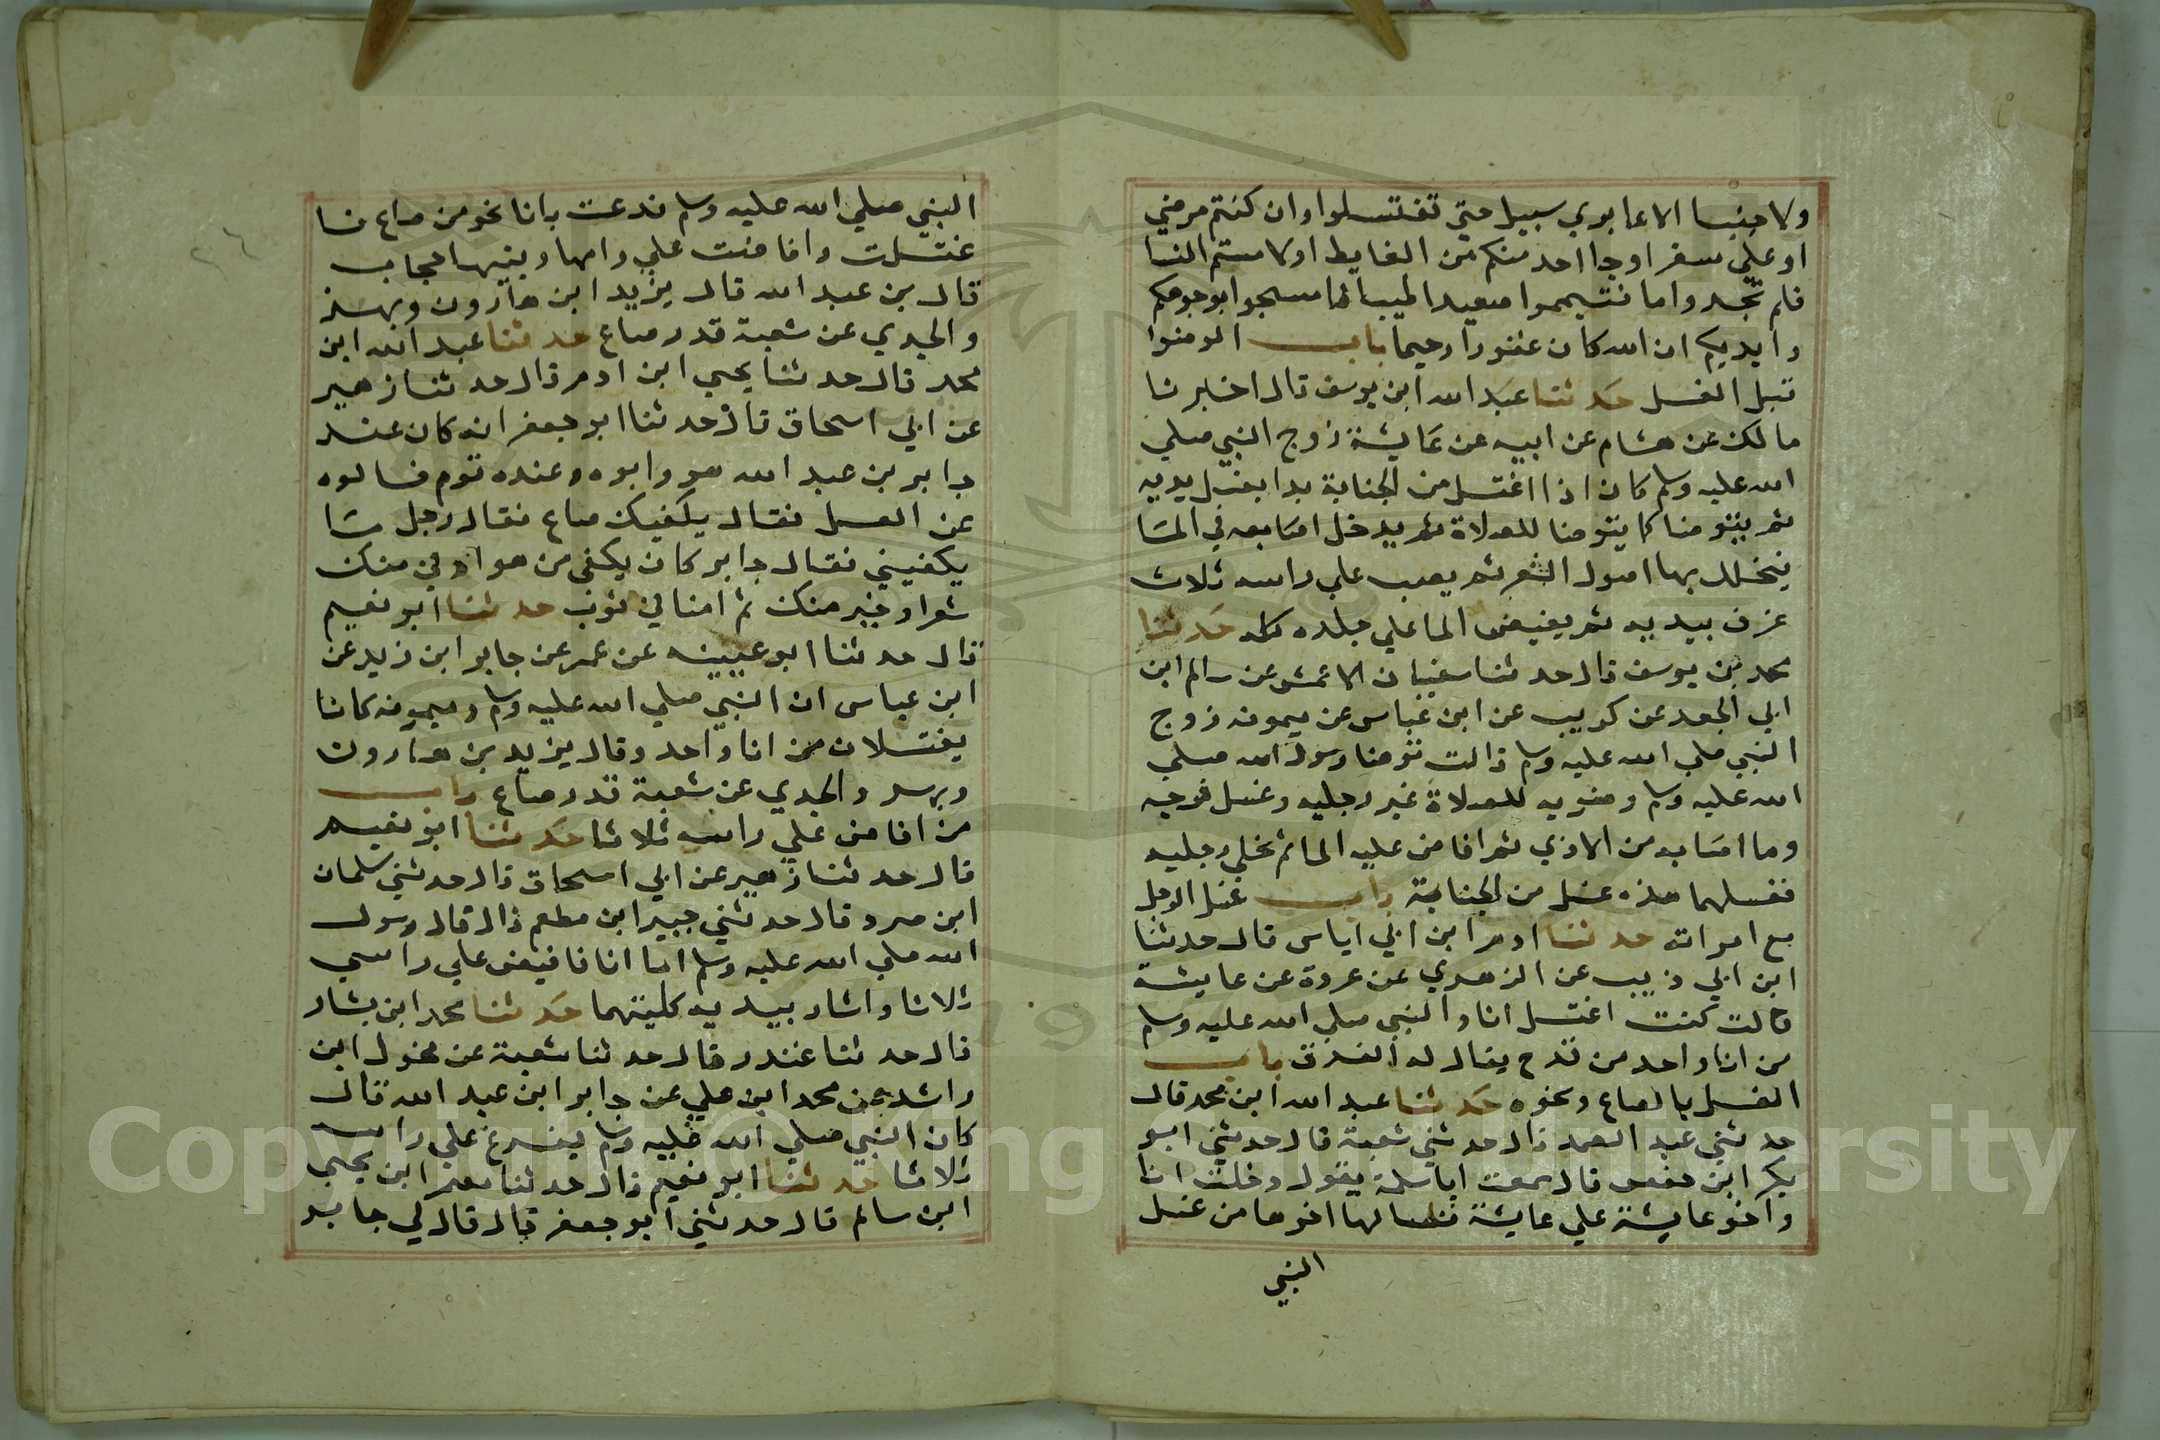 ولا جنبا الا عابري سبيل حتي تغتسلوا وان كنتم مرضي
او علي سفر او جا احد منكم من الغايط او لامستم النسا
فلم تجدوا ما فتيمموا صعيدا طيبا فامسحوا بوجوهكم
وايديكم ان الله كان عفورا رحيما باب الوضوا
قبل الغسل حدثنا عبد الله ابن يوسف قال اخبرنا
مالك عن هشام عن ابيه عن عايشة زوج النبي صلي
الله عليه وسلم كان اذا اغتسل من الجنابة بدا بغسل يديه
ثم يتوضا كما يتوضا للصلاة ثم يدخل اصابعه في الما
يخلل بها اصول الشعر ثم يصب علي راسه ثلاث
غرف بيديه ثم يفيض الما علي جلده كله حدثنا
محمد بن يوسف قال حدثنا سفيان الاعمش عن سالم ابن
ابي الجعد عن كريب عن ابن عباس عن ميمونه زوج
النبي صلي الله عليه وسلم قالت توضا رسول الله صلي
الله عليه وسلم وضويه للصلاة غير رجليه وغسل فرجه
وما اصابه من الاذي ثم افاض عليه الما ثم نحلي رجليه
فغسلهما هذه غسل من الجنابة باب غسل الرجل
مع امراته حدثنا ادم ابن ابي اياس قال حدثنا
ابن ابي ذيب عن الزهري عن عروة عن عايشة
قالت كنت اغتسل انا والنبي صلي الله عليه وسلم
من انا واحد من قدح يقال له الفرق باب
الغسل بالصاع ونحوه حدثنا عبد الله ابن محمد قال
حدثني عبد الصمد قال حدثني شعبة قال حدثني ابو
بكر ابن حفص قال سمعت ابا سلمة يقول دخلت انا
واخو عايشة علي عايشة فسالها اخوها من غسل
النبي
النبي صلي الله عليه وسلم فدعت بانا نحو من صاع فا
غتسلت وافاضت علي راسها وبينها حجاب
قال بن عبد الله قال يزيد ابن هارون وبهز
والجدي عن شعبة قدر صاع حدثنا عبد الله ابن
محمد قال حدثنا يحيي ابن ادم قال حدثنا زهير
عن ابي اسحاق قال حدثنا ابو جعفر انه كان عند
جابر بن عبد الله هو وابوه وعنده قوم فسالوه
عن الغسل فقال يكفيك صاع فقال رجل ما
يكفيني فقال جابر كان يكفي من هو اوفي منك
شعرا وخير منك ثم امنا في ثوب حدثنا ابو نعيم
قال حدثنا ابو عيينه عن عمر عن جابر ابن زيد عن
ابن عباس ان النبي صلي الله عليه وسلم وميمونه كانا
يغتسلان من انا واحد وقال يزيد بن هارون
وبهز والجدي عن شعبة قدر صاع باب
من افاض علي راسه ثلاثا حدثنا ابو نعيم
قال حدثنا زهير عن ابي اسحاق قال حدثني سلمان
ابن صرد قال حدثني جبير ابن مطعم قال قال رسول
الله صلي الله عليه وسلم اما انا فافيض علي راسي
ثلاثا واشار بيديه كلتيهما حدثنا محمد ابن بشار
قال حدثنا غندر قال حدثنا شعبة عن مخول ابن
راشد عن محمد ابن علي عن جابر ابن عبد الله قال
كان النبي صلي الله عليه وسلم يفرغ علي راسه
ثلاثا حدثنا ابو نعيم قال حدثنا معمر ابن يحيي
ابن سالم قال حدثني ابو جعفر قال قال لي جابر